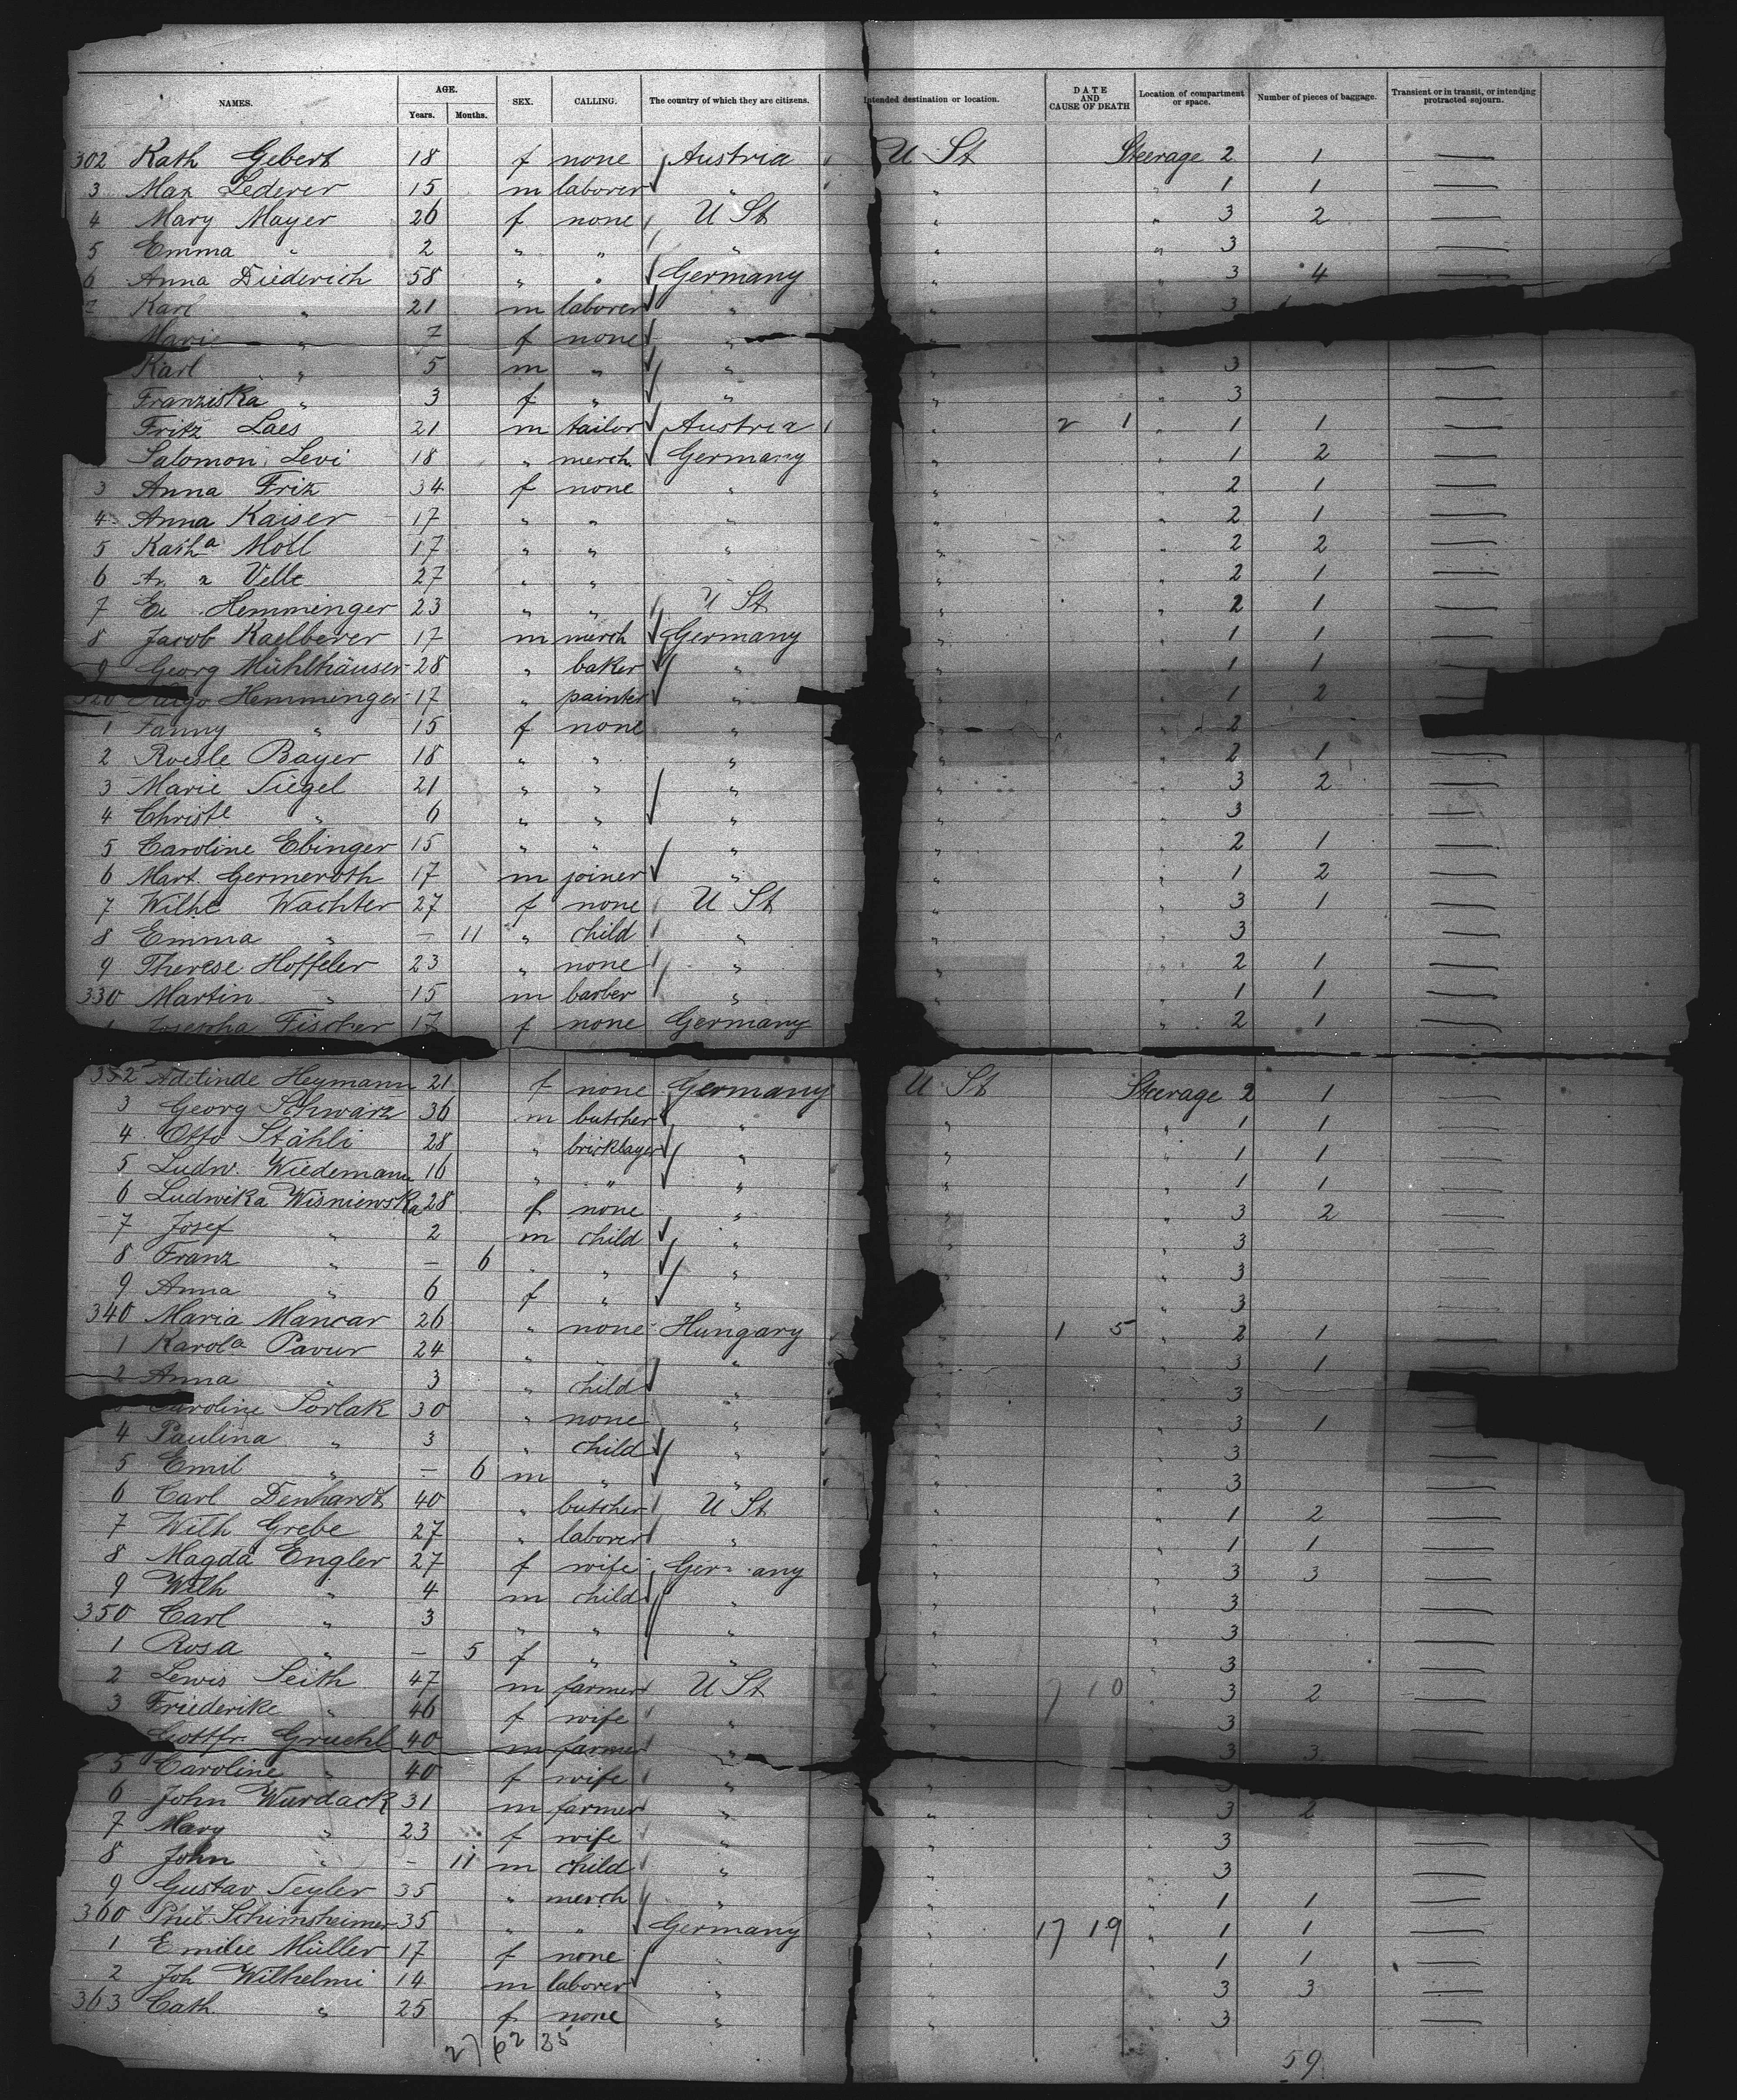 NAMES. AGE. Years. Months. SEX. CALLING. The country of which they are citizens. Intended destination or location. DATE AND CAUSE OF DEATH Location of compartment or space. Number of pieces of baggage. Transient or in transit, or intending protracted sojourn.
302 Kath Gebert 18 f none Austria U St Steerage 2 1 —
3 Max Lederer 15 m laborer " " " 1 1 —
4 Mary Mayer 26 f none U St " " 3 2 —
5 Emma " 2 " " " " " 3 —
6 Anna Diederich 58 " " Germany " " 3 4 —
7 Karl " 21 m laborer " " 3
Marie " 7 f none "
Karl " 5 m " " " 3 —
Franziska " 3 f " " " 3 —
Fritz Laes 21 m tailor Austria " 2 1 " 1 1 —
Salomon Levi 18 " merch Germany " " 1 2 —
3 Anna Friz 34 f none " " " 2 1 —
4 Anna Kaiser 17 " " " " " 2 1 —
5 Katha Moll 17 " " " " " 2 2 —
6 Velle 27 " " " " 2 1 —
7 Hemminger 23 " " U St " " 2 1 —
8 Jacob Kaelberer 17 m merch Germany " " 1 1 —
9 Georg Mühlhäuser 28 " baker " " " 1 1 —
320 Hugo Hemminger 17 " painter " " " 1 2 —
1 Fanny " 15 f none " " " 2
2 Roesle Bayer 18 " " " " " 2 1 —
3 Marie Siegel 21 " " " " " 3 2 —
4 Christe " 6 " " " " " 3 —
5 Caroline Ebinger 15 " " " " " 2 1 —
6 Mart. Germeroth 17 m joiner " " " 1 2 —
7 Wilhe Wachter 27 f none U St " " 3 1 —
8 Emma " — 11 " child " " " 3 —
9 Therese Hoffeler 23 " none " " " 2 1 —
330 Martin " 15 m barber " " " 1 1 —
1 Josepha Fischer 17 f none Germany " 2 1 —
332 Adelinde Heymann 21 f none Germany U St Steerage 2 1 —
3 Georg Schwarz 36 m butcher " " " 1 1 —
4 Otto Stähli 28 " bricklayer " " " 1 1 —
5 Ludw. Wiedemann 16 " " " " " 1 1 —
6 Ludwika Wisniewska 28 f none " " " 3 2 —
7 Josef " 2 m child " " " 3 —
8 Franz " — 6 " " " " 3 —
9 Anna " 6 f " " " 3 —
340 Maria Mancar 26 " none Hungary " 1 5 " 2 1 —
1 Karola Pavur 24 " " " " " 3 1 —
2 Anna " 3 " child " " " 3
Caroline Sorlak 30 " none " " " 3 1
4 Paulina " 3 " child " " " 3
5 Emil " — 6 m " " " " 3 —
6 Carl Denhardt 40 " butcher U St " " 1 2 —
7 Wilh Grebe 27 " laborer " " " 1 1 —
8 Magda Engler 27 f wife Germany " " 3 3 —
9 Wilh " 4 m child " " " 3 —
350 Carl " 3 " " " " " 3 —
1 Rosa " — 5 f " " " " 3 —
2 Lewis Seith 47 m farmer U St " 7 10 " 3 2 —
3 Friederike " 46 f wife " " " 3 —
Gottfr. Gruehl 40 m farmer " 3 3 —
5 Caroline " 40 f wife " " 3
6 John Wurdack 31 m farmer " " " 3 2
7 Mary " 23 f wife " " " 3 —
8 John " — 11 m child " " " 3 —
9 Gustav Seyler 35 " merch " " " 1 1 —
360 Phil. Schimsheimer 35 " " Germany " 17 19 " 1 1 —
1 Emilie Müller 17 f none " " " 1 1 —
2 Joh Wilhelmi 14 m laborer " " " 3 3 —
363 Cath " 25 f none " " " 3 —
27 62 35 59